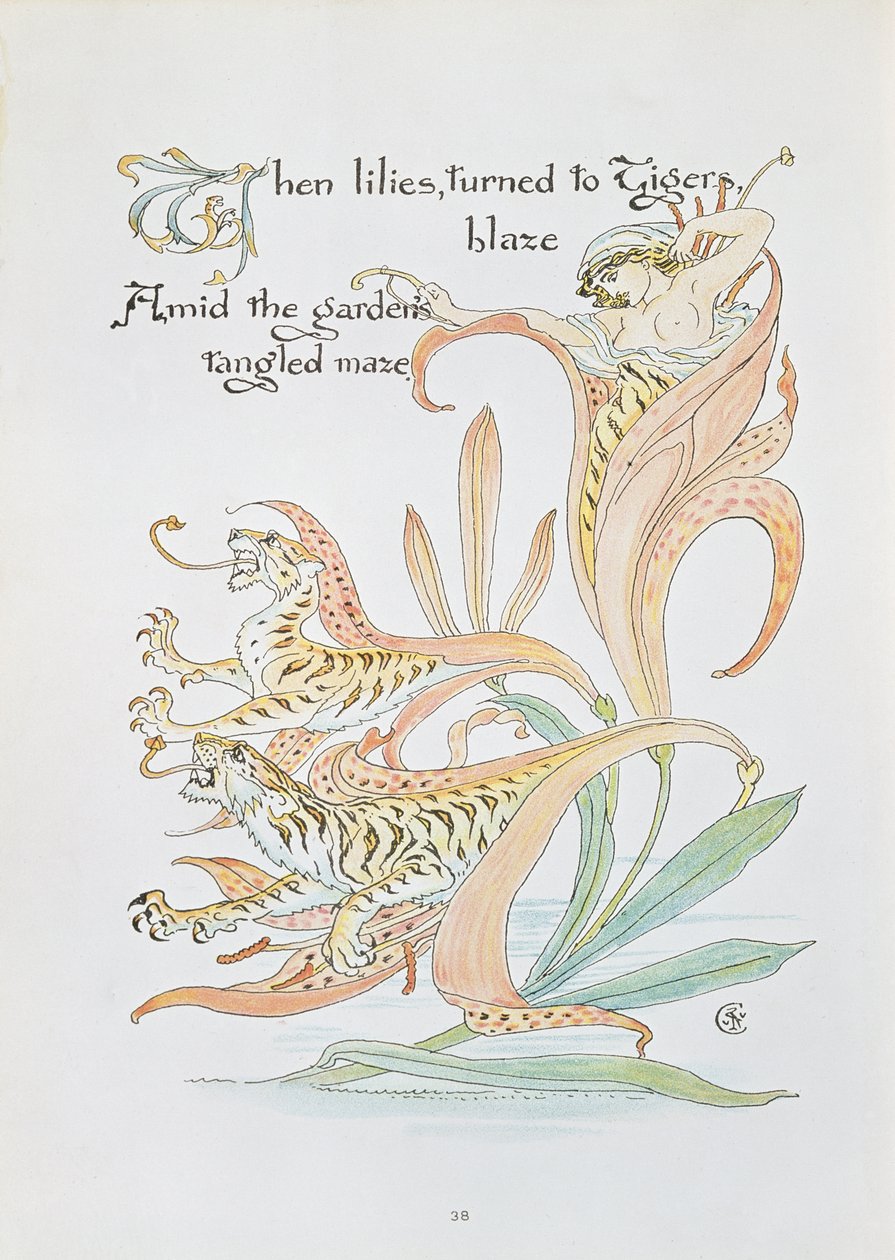 Then lilies, turned to Tigers,
blaze
Amid the garden's
tangled maze.
38